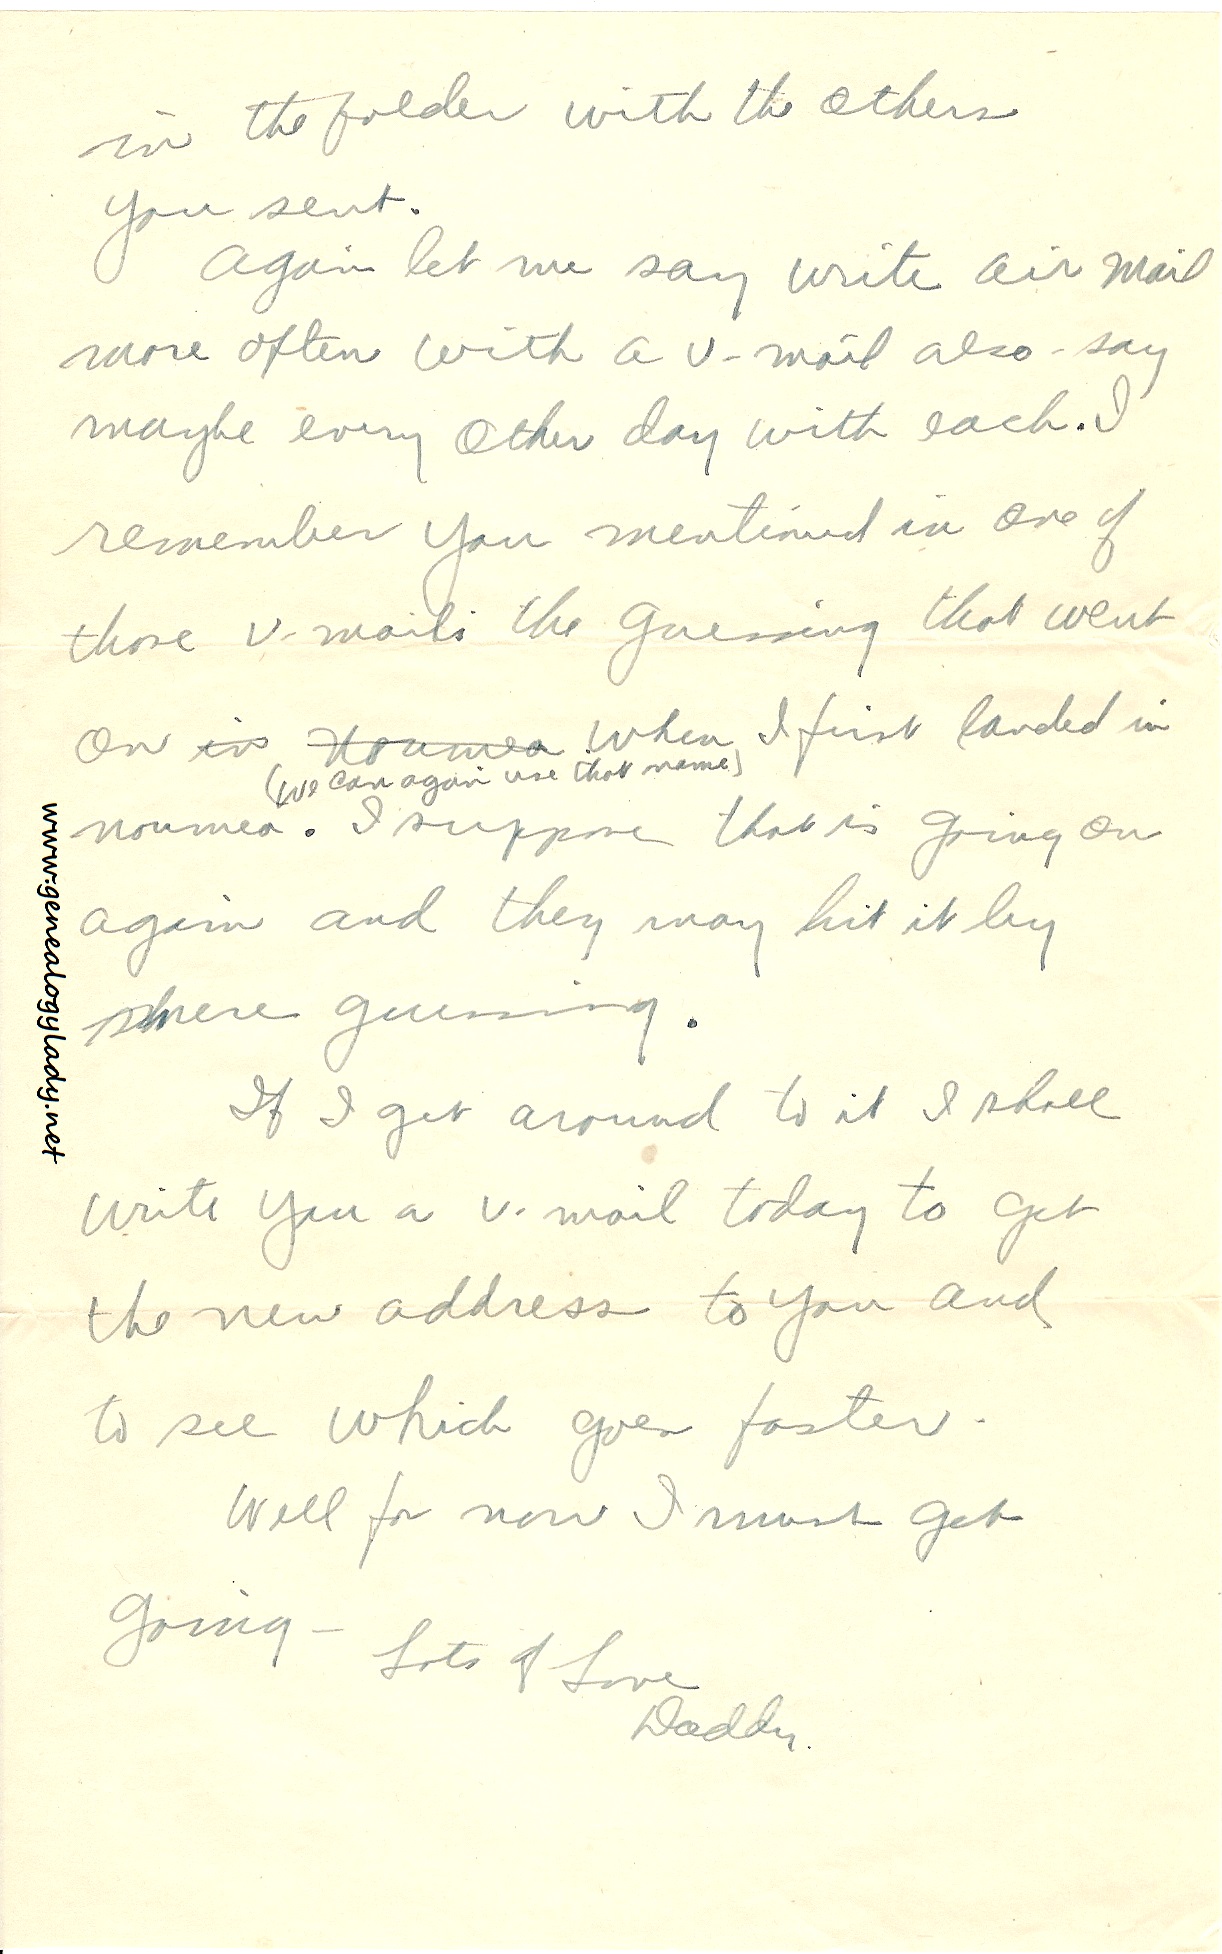 in the folder with the others
you sent.
Again let me say write air mail
more often with a v-mail also - say
maybe every other day with each. I
remember you mentioned in one of
those v-mails the guessing that went
on in Noumea when I first landed in
(We can again use that name)
noumea. I suppose that is going on
again and they may hit it by
shere guessing.
If I get around to it I shall
write you a v-mail today to get
the new address to you and
to see which goes faster.
Well for now I must get
going –
Lots of Love
Daddy.
www.genealogylady.net